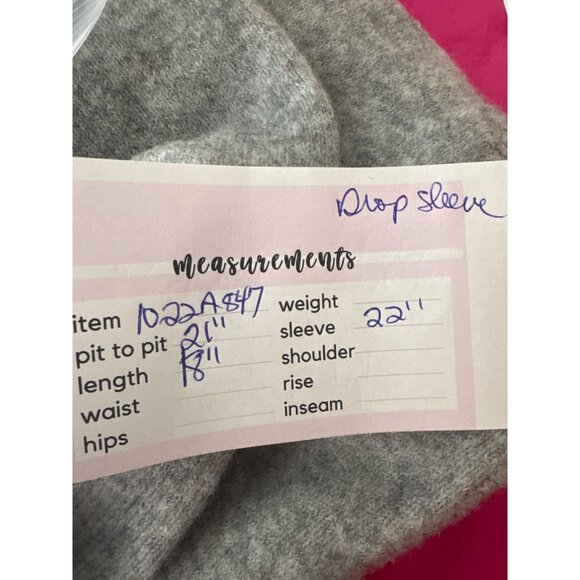 Drop sleeve
measurements
item 10-22A847
pit to pit 21"
length 18"
waist
hips
weight
sleeve 22"
shoulder
rise
inseam